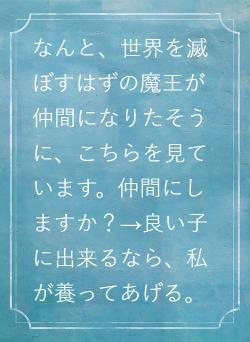 なんと、世界を滅
ぼすはずの魔王が
仲間になりたそう
に、こちらを見て
います。仲間にし
ますか？→良い子
に出来るなら、私
が養ってあげる。